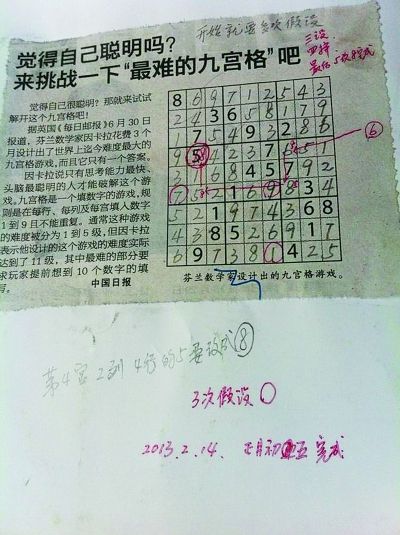 开始就要多次假设
觉得自己聪明吗?
来挑战一下“最难的九宫格”吧
觉得自己很聪明?那就来试试
解开这个九宫格吧!
据英国《每日邮报》6月30日
报道,芬兰数学家因卡拉花费3个
月设计出了世界上迄今难度最大的
九宫格游戏,而且它只有一个答案。
因卡拉说只有思考能力最快、
头脑最聪明的人才能破解这个游
戏。九宫格是一个填数字的游戏,规
则是在每行、每列及每宫填入数字
1到9且不能重复。通常这种游戏
的难度被分为1到5级,但因卡拉
表示他设计的这个游戏的难度实际
达到了11级,其中最难的部分要
求玩家提前想到10个数字的填
写。
中国日报
8 6 9 7 1 2 5 4 3
2 4 3 6 5 8 1 7 9
1 7 5 4 9 3 2 8 6
6
芬兰数学家设计出的九宫格游戏。
第4宫2列4行的5要改成8
3次假设
2013.2.14. 正月初五完成